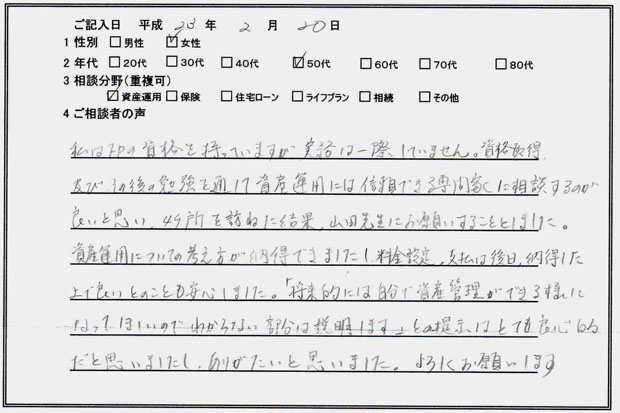 ご記入日 平成 23 年 2 月 20 日
1 性別 □ 男性 ☑ 女性
2 年代 □ 20代 □ 30代 □ 40代 ☑ 50代 □ 60代 □ 70代 □ 80代
3 相談分野(重複可)
☑ 資産運用 □ 保険 □ 住宅ローン □ ライフプラン □ 相続 □ その他
4 ご相談者の声
私はFPの資格を持っていますが実務は一際していません。資格取得
及びその後の勉強を通じて資産運用には信頼できる専門家に相談するのが
良いと思い、4ヶ所を訪ねた結果、山田先生にお願いすることとしました。
資産運用についての考え方が納得できましたし、料金設定、支払は後日、納得した
上で良いとのことも安心しました。「将来的には自分で資産管理ができる様に
なってほしいのでわからない部分は説明します」との提示はとても良心的
だと思いましたし、ありがたいと思いました。よろしくお願いします